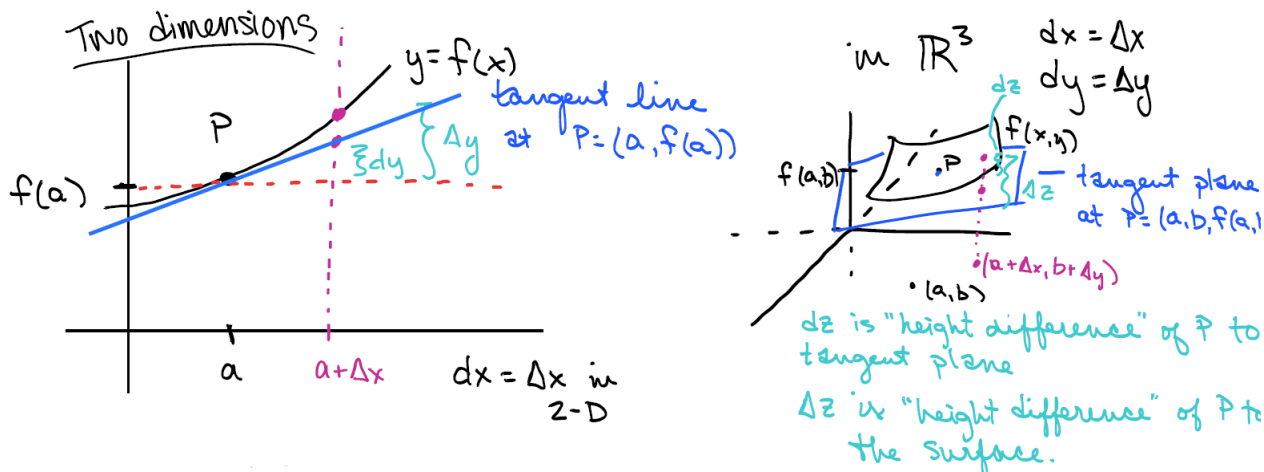 Two dimensions
y=f(x)
P
tangent line
at P=(a,f(a))
dy
Δy
f(a)
a
a+Δx
dx = Δx in
2-D
in ℝ³
dx = Δx
dy = Δy
dz
f(x,y)
P
f(a,b)
Δz
tangent plane
at P=(a,b,f(a,
(a+Δx, b+Δy)
(a,b)
dz is "height difference" of P to
tangent plane
Δz is "height difference" of P to
the surface.